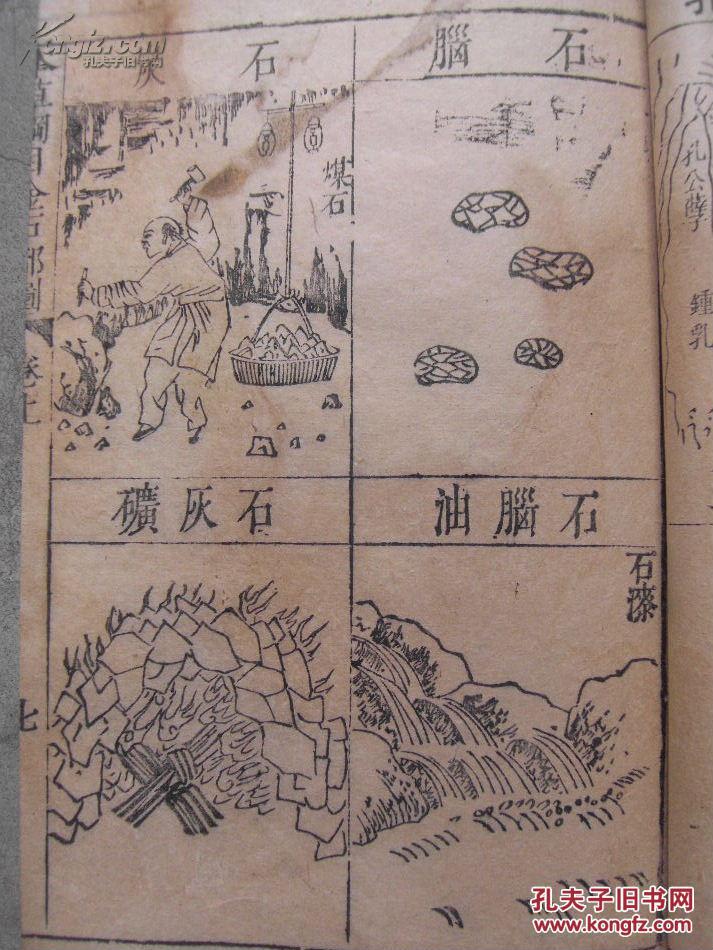 石腦
石灰
煤石
石腦油
石漆
石灰礦
本草綱目金石部圖 卷上
七
孔公孽
鍾乳
Kongfz.com
孔夫子旧书网
孔夫子旧书网
www.kongfz.com